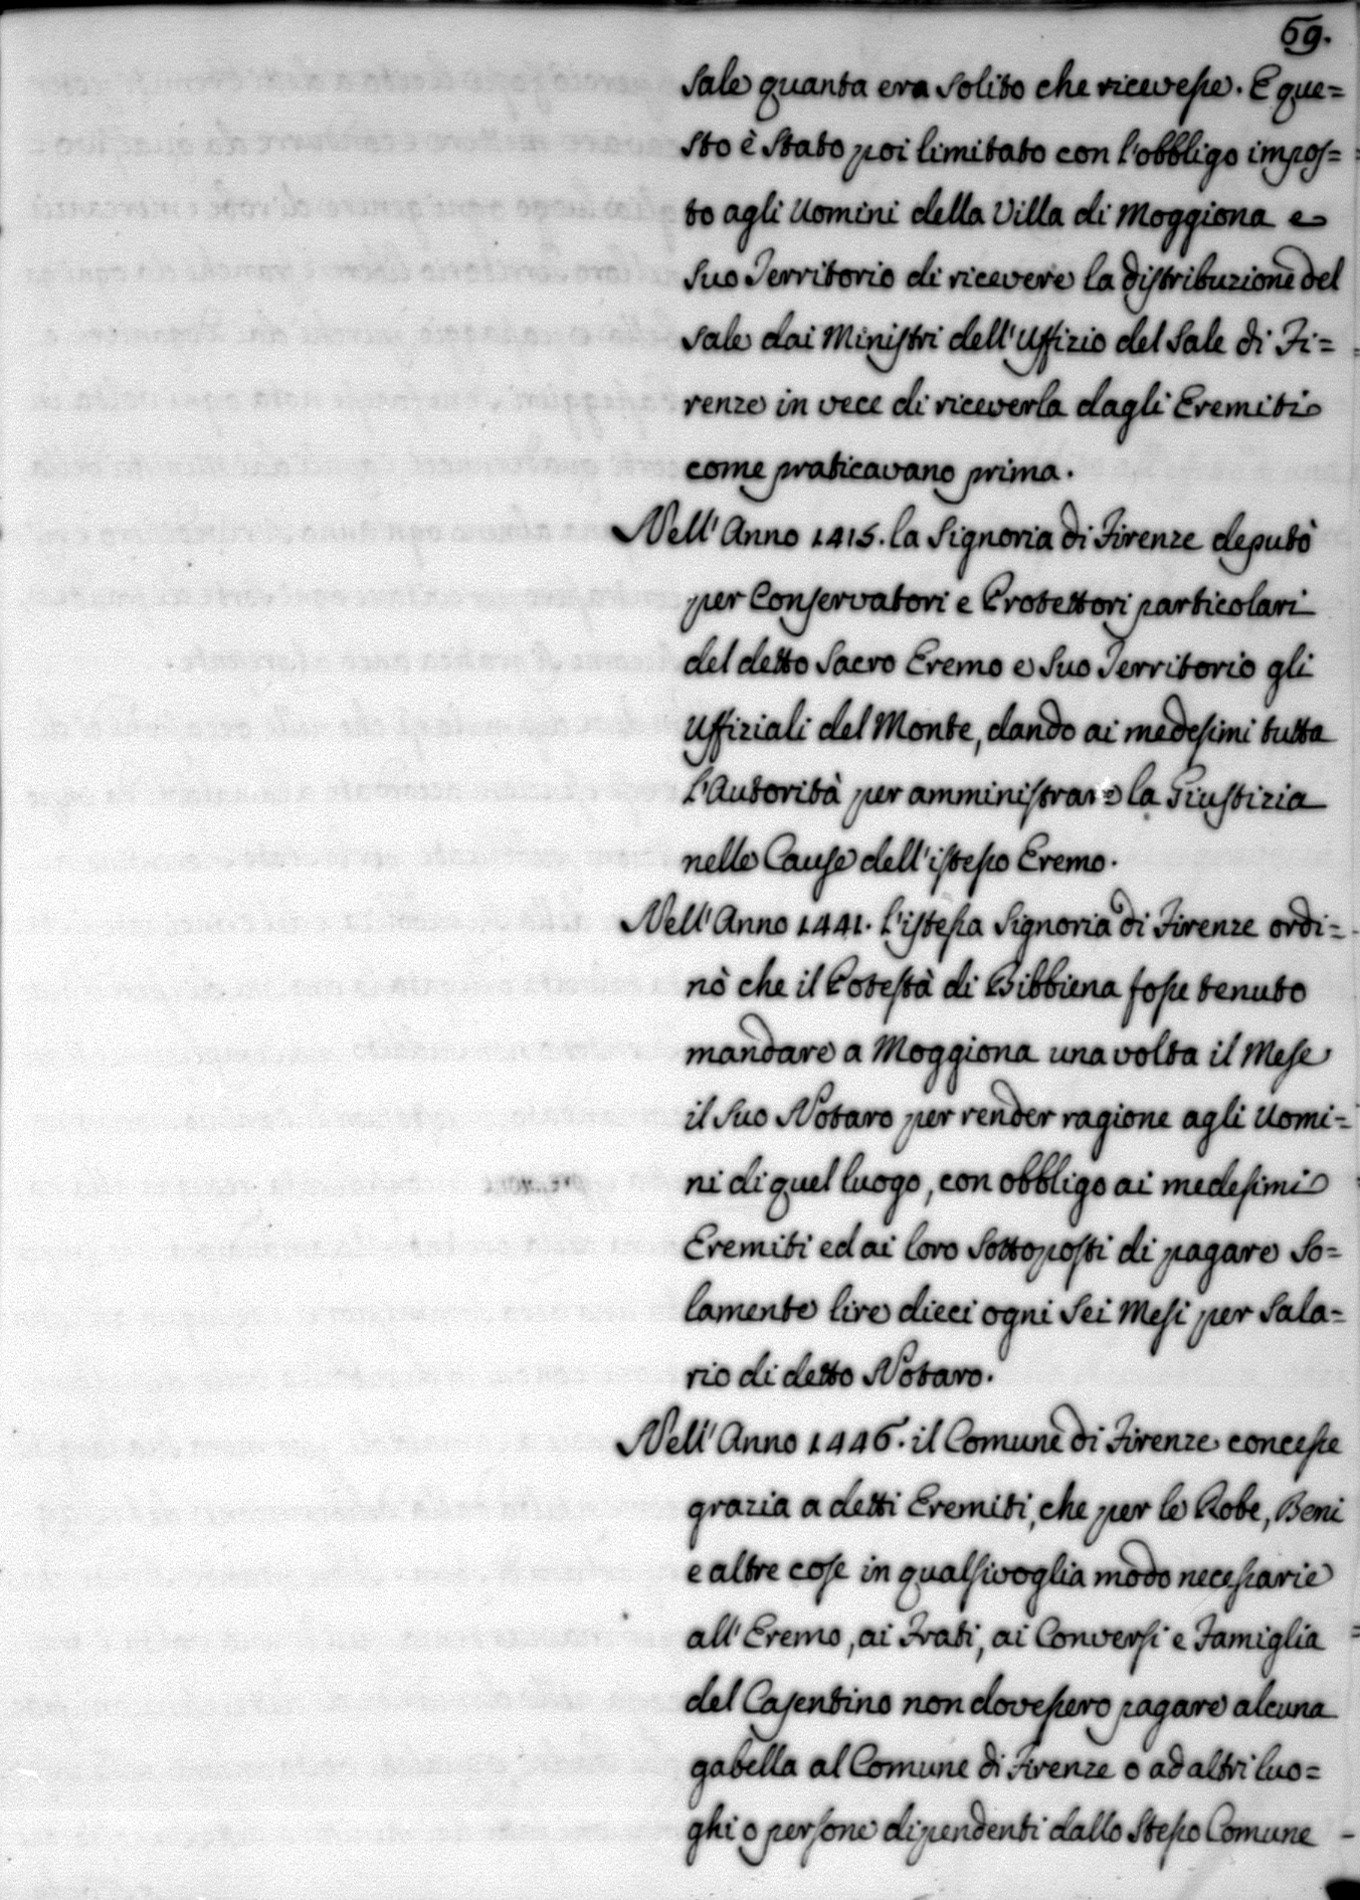 69.
Sale quanta era solito che ricevesse. E que=
sto è stato poi limitato con l'obbligo impos=
to agli Uomini della Villa di Moggiona e
suo Territorio di ricevere la distribuzione del
sale dai Ministri dell'Uffizio del Sale di Fi=
renze in vece di riceverla dagli Eremiti
come praticavano prima.
Nell'Anno 1415. la Signoria di Firenze deputò
per Conservatori e Protettori particolari
del detto Sacro Eremo e suo Territorio gli
Uffiziali del Monte, dando ai medesimi tutta
l'Autorità per amministrare la Giustizia
nelle Cause dell'istesso Eremo.
Nell'Anno 1441. l'istessa Signoria di Firenze ordi=
nò che il Potestà di Bibbiena fosse tenuto
mandare a Moggiona una volta il Mese
il suo Notaro per render ragione agli Uomi=
ni di quel luogo, con obbligo ai medesimi
Eremiti ed ai loro sottoposti di pagare so=
lamente lire dieci ogni sei Mesi per sala=
rio di detto Notaro.
Nell'Anno 1446. il Comune di Firenze concesse
grazia a detti Eremiti, che per le Robe, Beni
e altre cose in qualsivoglia modo necessarie
all'Eremo, ai Frati, ai Conversi e Famiglia
del Casentino non dovessero pagare alcuna
gabella al Comune di Firenze o ad altri luo=
ghi o persone dipendenti dallo stesso Comune